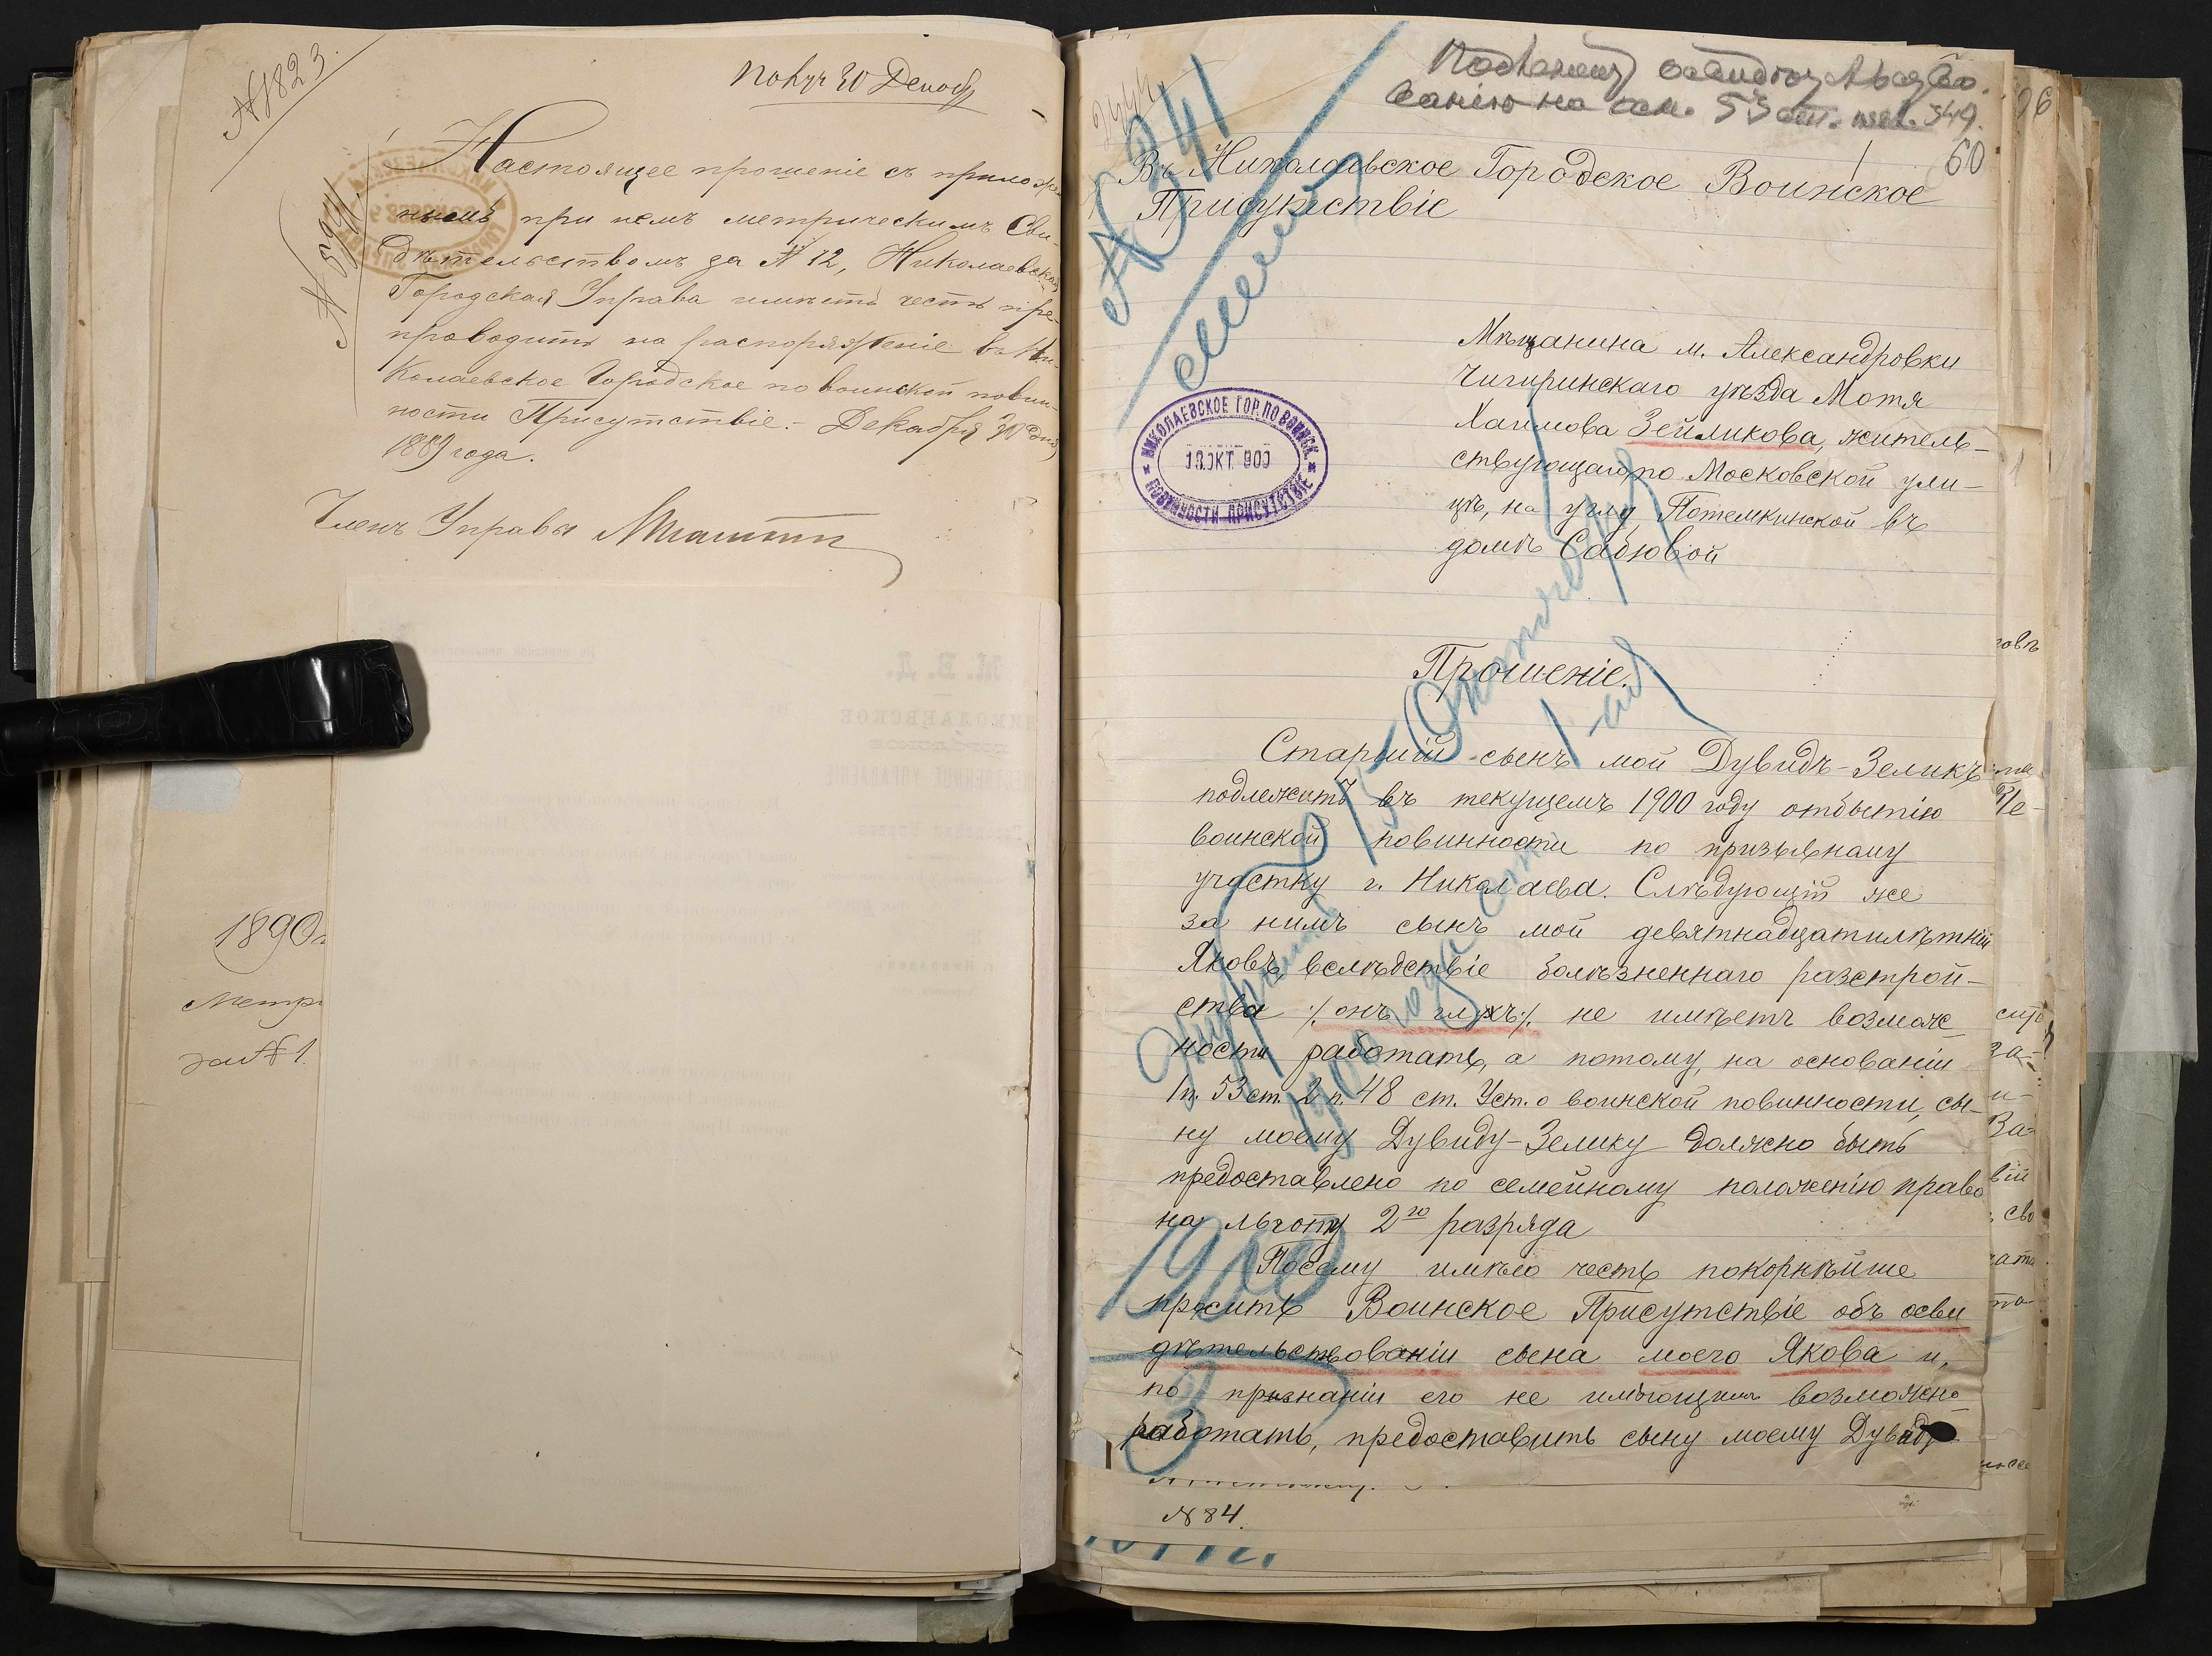 № 1823
Получ 30 Декабр
Настоящее прошеніе съ приложен
нымъ при немъ метрическимъ Сви-
дѣтельствомъ за № 12, Николаевская
Городская Управа имѣетъ честь пре-
проводить на распоряженіе въ Ни-
колаевское Городское по воинской повин-
ности Присутствіе. - Декабря 30 дня
1889 года.
Членъ Управы
1890
Метр
за № 1.
60
№ 241
Въ Николаевское Городское Воинское
Присутствіе
Мѣщанина м. Александровки
Чигиринскаго уѣзда Мотя
Хаимова Зейликова, житель-
ствующаго по Московской ули-
цѣ, на углу Потемкинской въ
домѣ
НИКОЛАЕВСКОЕ ГОР. ПО ВОИНСК.
ОКТ. 900
ПОВИННОСТИ ПРИСУТСТВІЕ
Прошеніе.
Старшій сынъ мой Дувидъ-Зеликъ
подлежитъ въ текущемъ 1900 году отбытію
воинской повинности по призывному
участку г. Николаева. Слѣдующій же
за нимъ сынъ мой девятнадцатилѣтній
Яковъ, вслѣдствіе болѣзненнаго разстрой-
ства /. онъ глухъ ./. не имѣетъ возмож-
ности работать, а потому, на основаніи
1 п. 53 ст. 2 п. 48 ст. Уст. о воинской повинности, сы-
ну моему Дувиду-Зелику должно быть
предоставлено по семейному положенію право
на льготу 2го разряда
Посему имѣю честь покорнѣйше
просить Воинское Присутствіе объ осви
дѣтельствованіи сына моего Якова и,
по признаніи его не имѣющимъ возможно
работать, предоставить сыну моему Дувиду
№ 84.